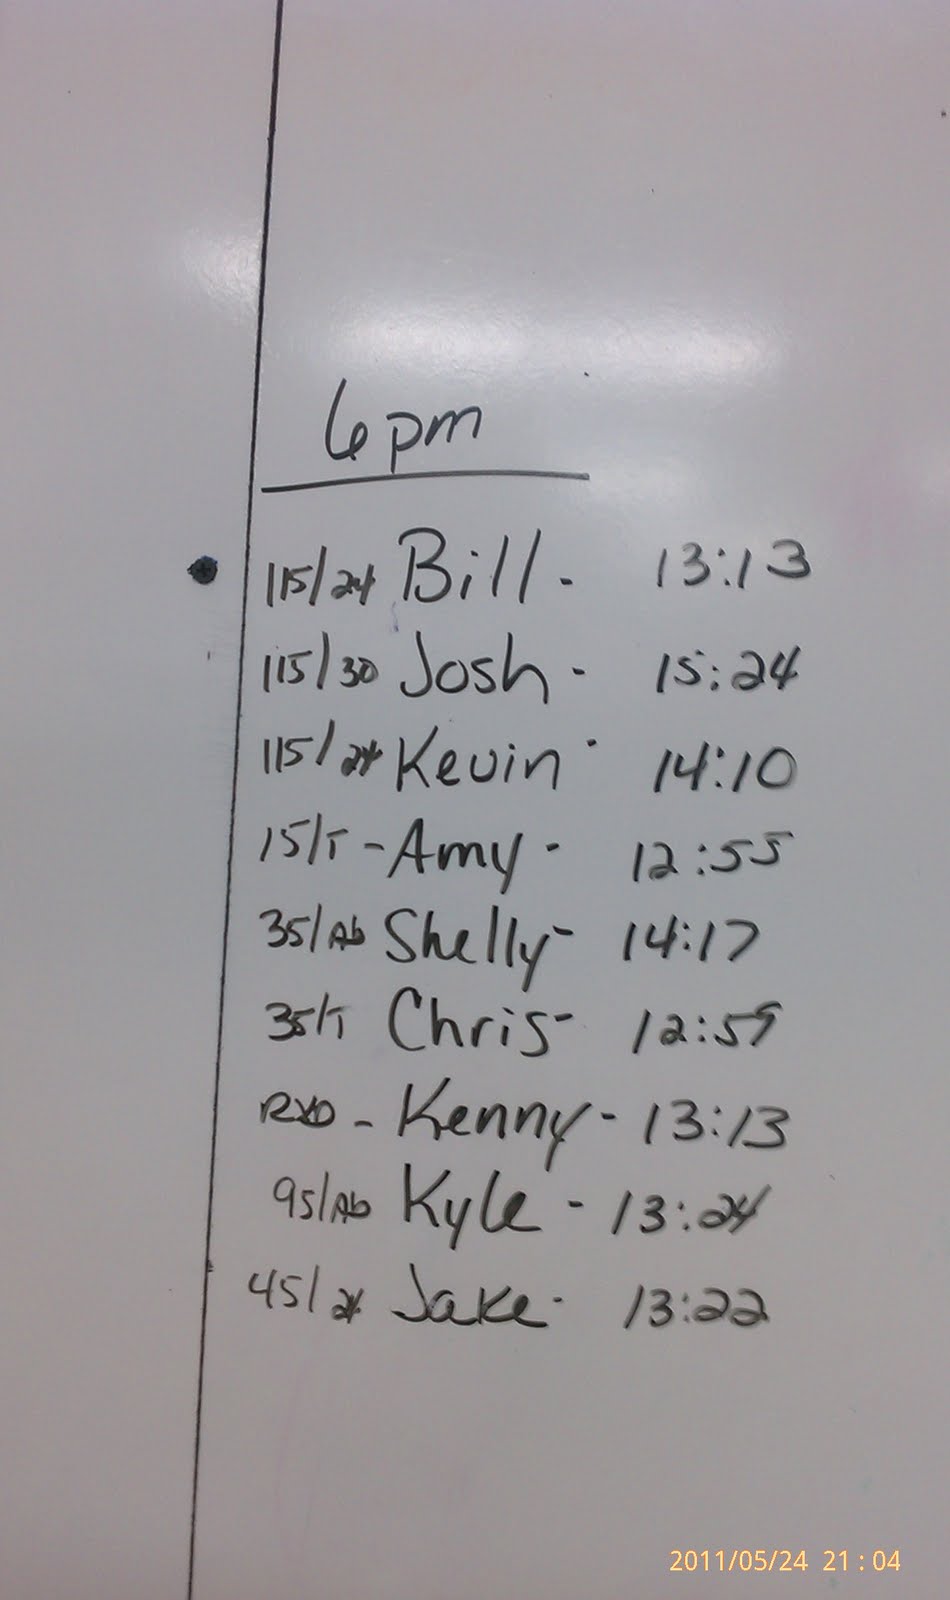 6pm
115/24 Bill - 13:13
115/30 Josh - 15:24
115/24 Kevin - 14:10
15/T - Amy - 12:55
35/Ab Shelly - 14:17
35/T Chris - 12:59
RXD - Kenny - 13:13
95/Ab Kyle - 13:24
45/24 Jake - 13:22
2011/05/24 21:04